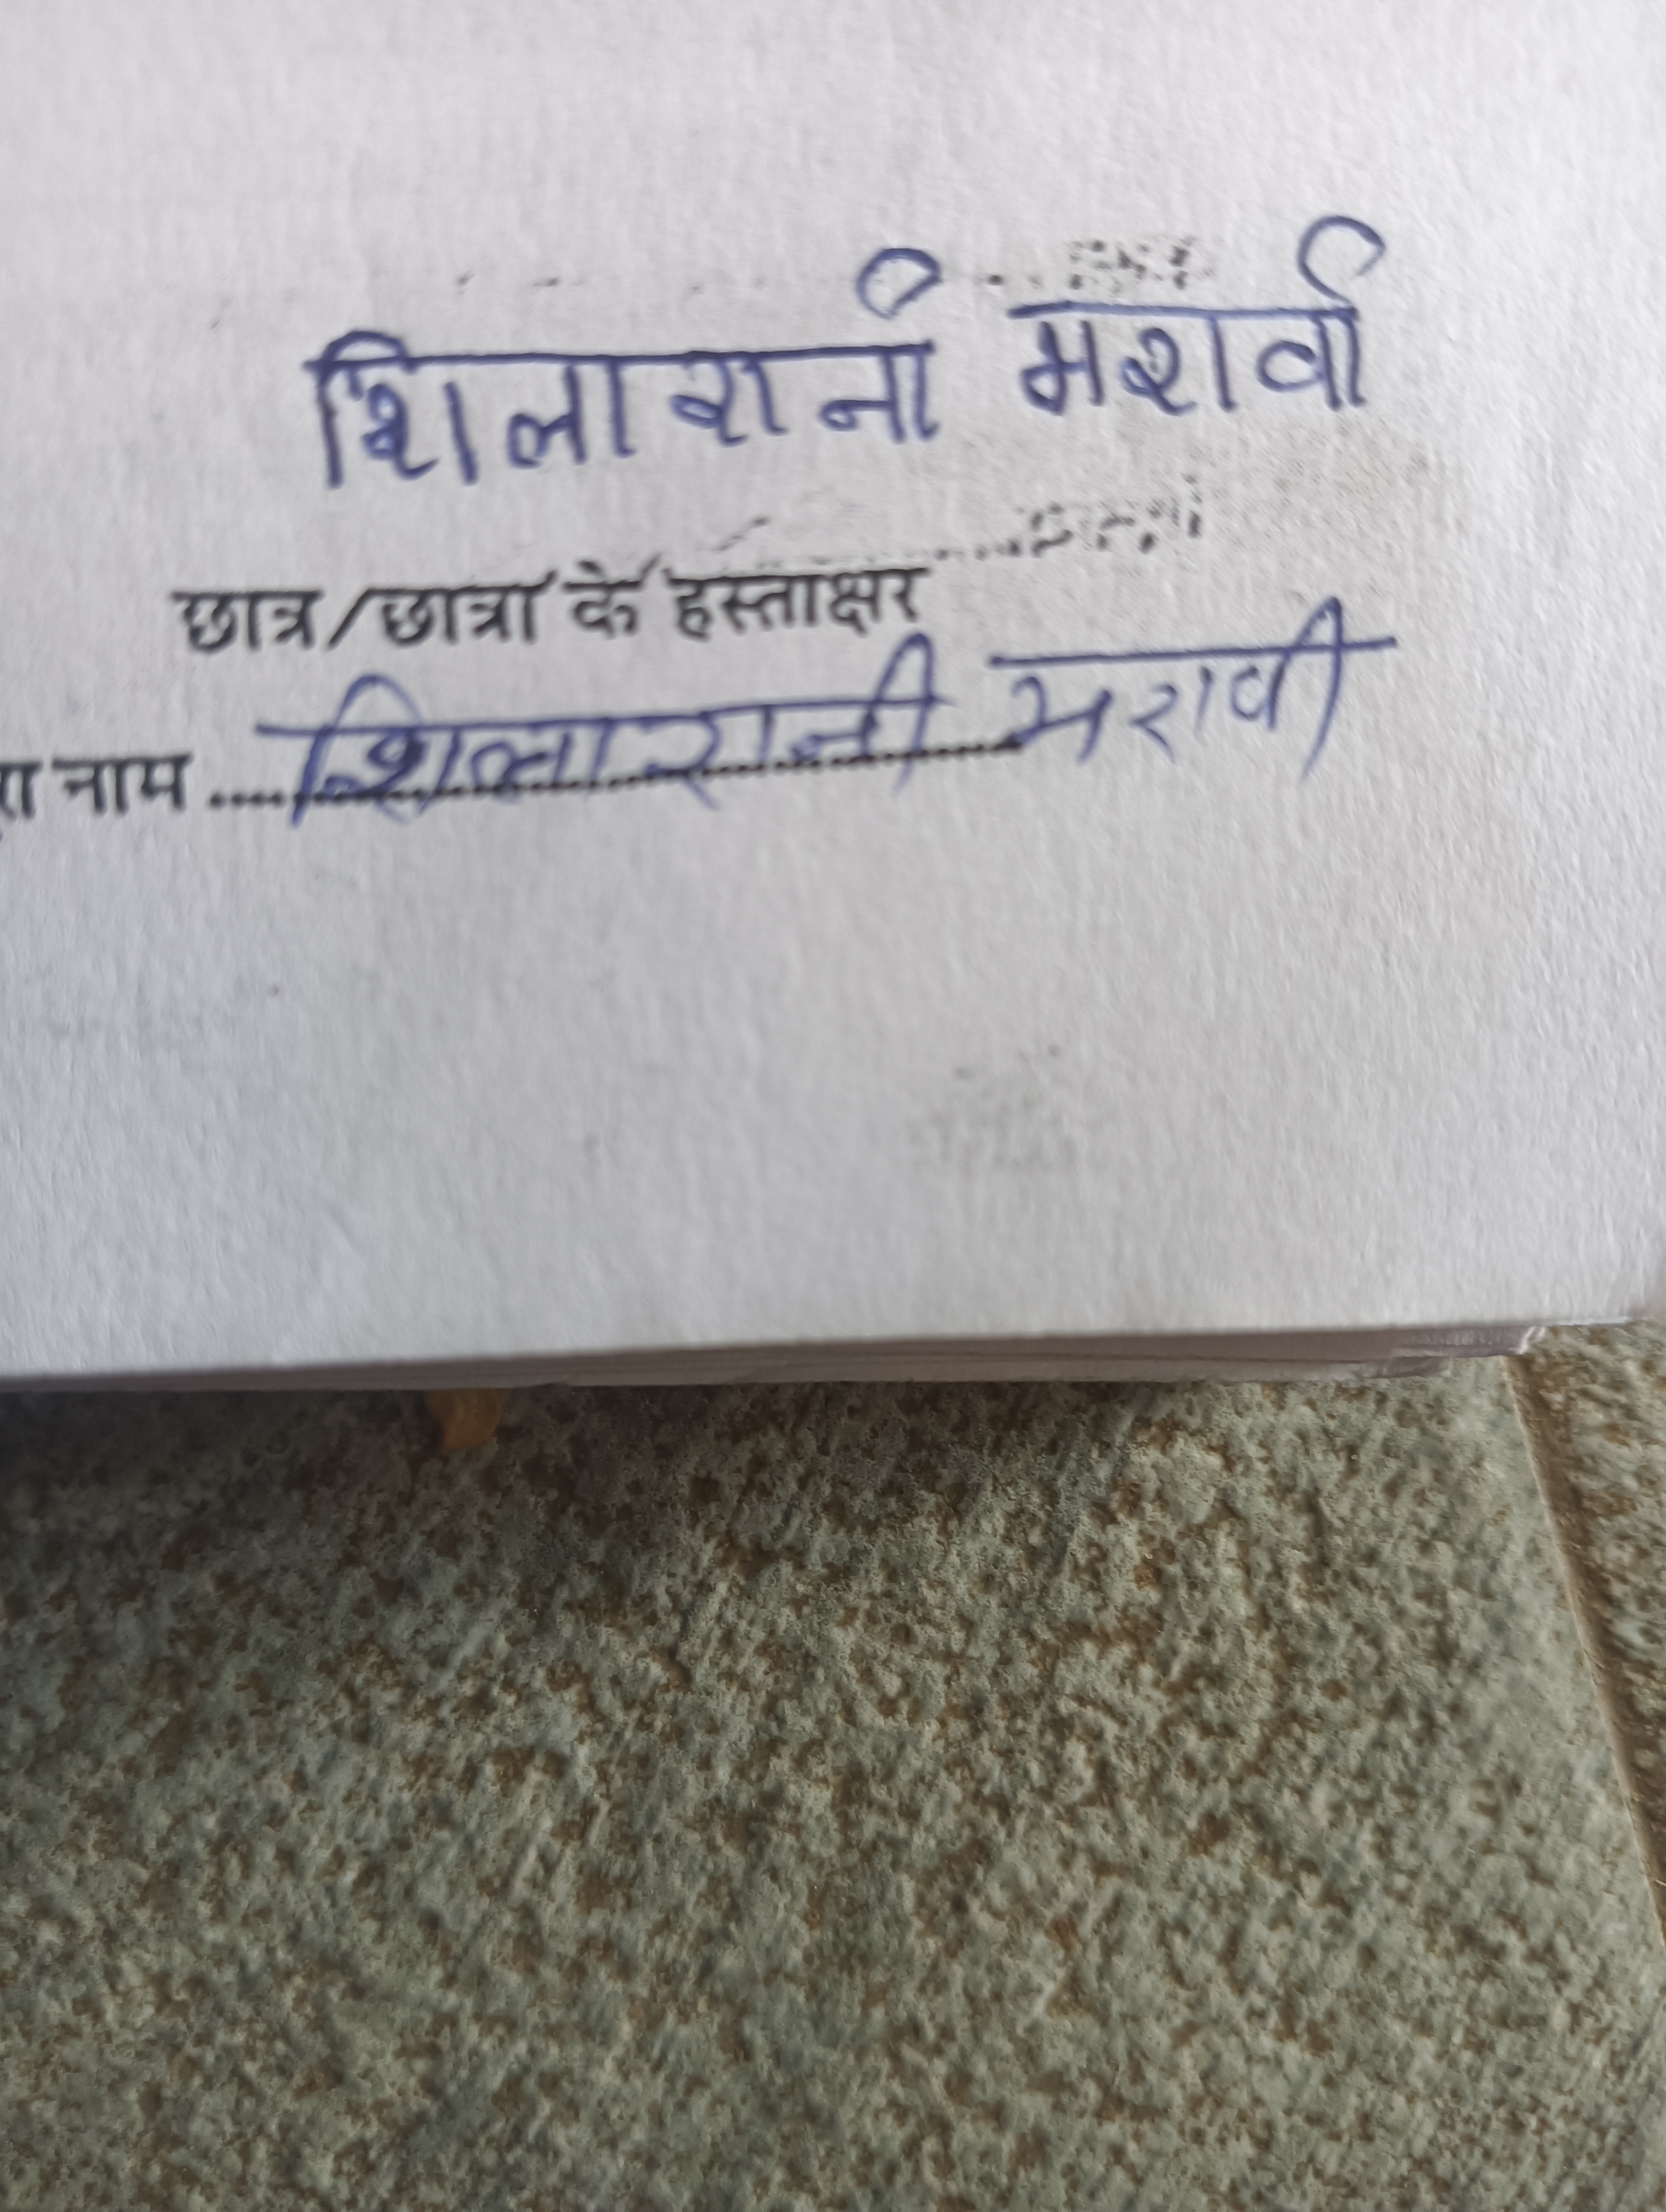 शिलारानी मरावी
छात्र/छात्रा के हस्ताक्षर
नाम .... शिलारानी मरावी